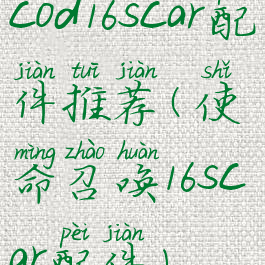 cod16scar配
jiàn tuī jiàn shǐ
件推荐(使
mìng zhào huàn
命召唤16sc
pèi jiàn
ar配件)